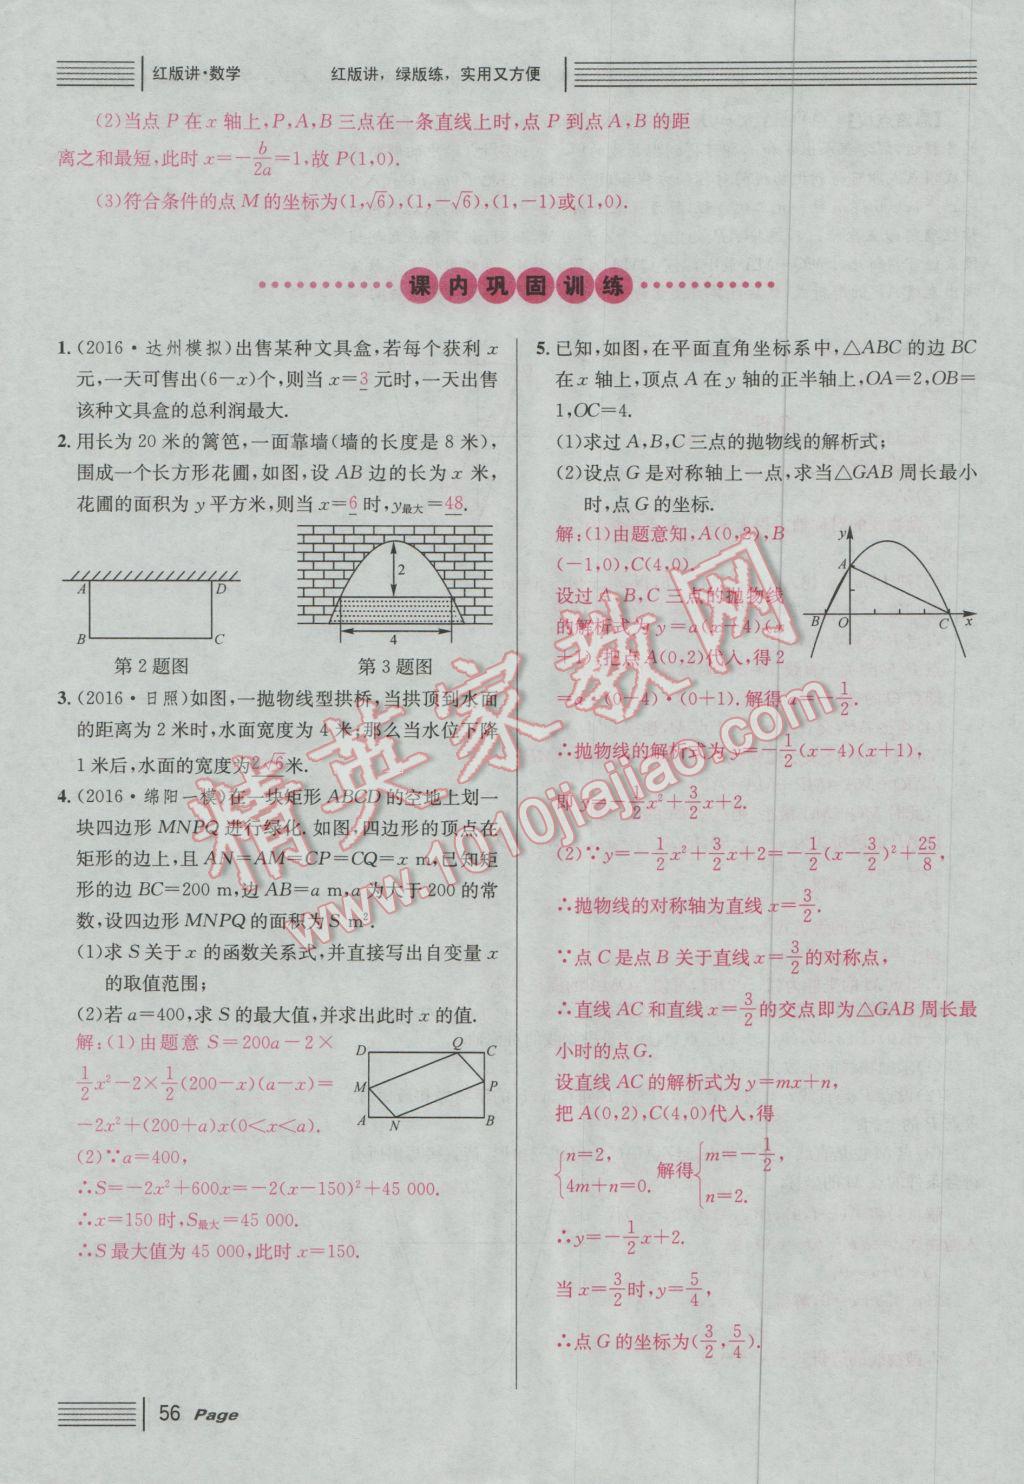 红版讲·数学 红版讲，绿版练，实用又方便
(2)当点P在x轴上,P,A,B三点在一条直线上时,点P到点A,B的距
离之和最短,此时x=-b/2a=1,故P(1,0).
(3)符合条件的点M的坐标为(1,√6),(1,-√6),(1,-1)或(1,0).
课内巩固训练
1.(2016·达州模拟)出售某种文具盒,若每个获利x
元,一天可售出(6-x)个,则当x=3元时,一天出售
该种文具盒的总利润最大.
2.用长为20米的篱笆,一面靠墙(墙的长度是8米),
围成一个长方形花圃,如图,设AB边的长为x米,
花圃的面积为y平方米,则当x=6时,y最大=48.
A D
B C
2
4
第2题图 第3题图
3.(2016·日照)如图,一抛物线型拱桥,当拱顶到水面
的距离为2米时,水面宽度为4米;那么当水位下降
1米后,水面的宽度为2√6米.
4.(2016·绵阳一模)在一块矩形ABCD的空地上划一
块四边形MNPQ进行绿化.如图,四边形的顶点在
矩形的边上,且AN=AM=CP=CQ=x m,已知矩
形的边BC=200 m,边AB=a m,a为大于200的常
数,设四边形MNPQ的面积为S m².
(1)求S关于x的函数关系式,并直接写出自变量x
的取值范围;
(2)若a=400,求S的最大值,并求出此时x的值.
解:(1)由题意S=200a-2×
1/2x²-2×1/2(200-x)(a-x)=
-2x²+(200+a)x(0<x<a).
D Q C
M P
A N B
(2)∵a=400,
∴S=-2x²+600x=-2(x-150)²+45 000.
∴x=150时,S最大=45 000.
∴S最大值为45 000,此时x=150.
5.已知,如图,在平面直角坐标系中,△ABC的边BC
在x轴上,顶点A在y轴的正半轴上,OA=2,OB=
1,OC=4.
(1)求过A,B,C三点的抛物线的解析式;
(2)设点G是对称轴上一点,求当△GAB周长最小
时,点G的坐标.
解:(1)由题意知,A(0,2),B
(-1,0),C(4,0).
设过A,B,C三点的抛物线
的解析式为y=a(x-4)(x
+1),把点A(0,2)代入,得2
=a·(0-4)·(0+1).解得a=-1/2.
y
A
B O C x
∴抛物线的解析式为y=-1/2(x-4)(x+1),
即y=-1/2x²+3/2x+2.
(2)∵y=-1/2x²+3/2x+2=-1/2(x-3/2)²+25/8,
∴抛物线的对称轴为直线x=3/2.
∵点C是点B关于直线x=3/2的对称点,
∴直线AC和直线x=3/2的交点即为△GAB周长最
小时的点G.
设直线AC的解析式为y=mx+n,
把A(0,2),C(4,0)代入,得
{n=2, 4m+n=0. 解得{m=-1/2, n=2.
∴y=-1/2x+2.
当x=3/2时,y=5/4,
∴点G的坐标为(3/2,5/4).
精英家教网
www.1010jiajiao.com
56 Page